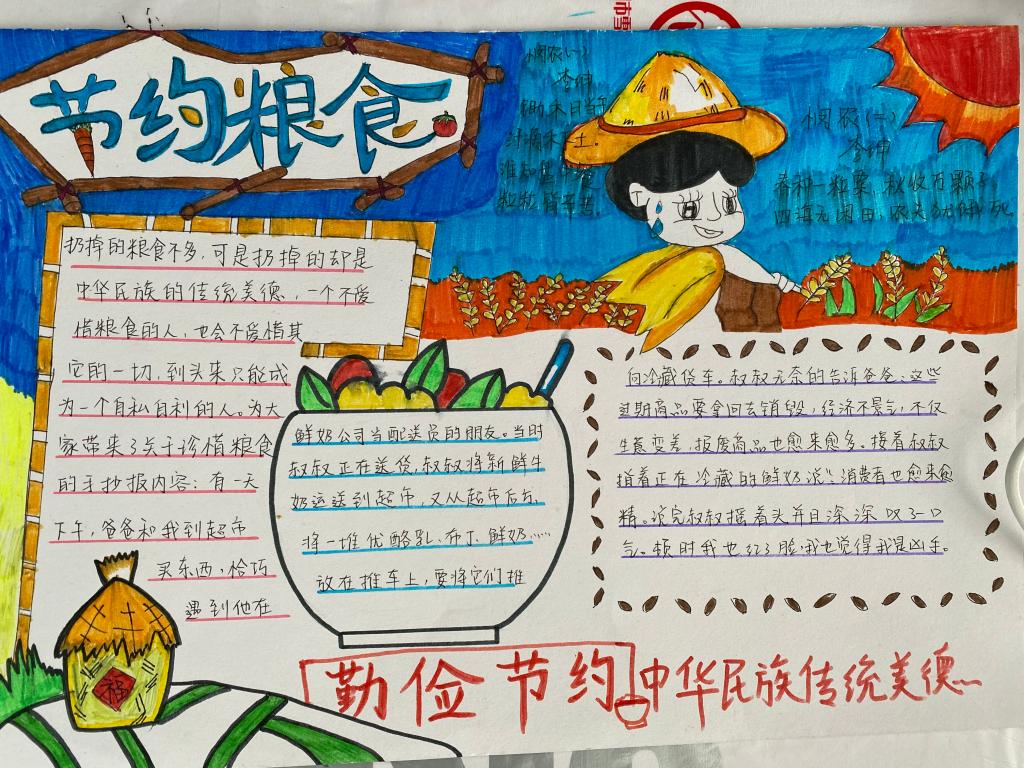 节约粮食
悯农(一)
李绅
锄禾日当午
汗滴禾 土.
谁知
粒粒皆辛苦
悯农(一)
李绅
春种一粒粟,秋收万颗子
四海无闲田,农夫犹饿死
扔掉的粮食不多,可是扔掉的却是
中华民族的传统美德,一个不爱
惜粮食的人,也会不爱惜其
它的一切,到头来只能成
为一个自私自利的人。为大
家带来了关于珍惜粮食
的手抄报内容:有一天
下午,爸爸和我到超市
买东西,恰巧
遇到他在
鲜奶公司当配送员的朋友。当时
叔叔正在送货,叔叔将新鲜牛
奶运送到超市,又从超市后方,
将一堆优酪乳、布丁、鲜奶……
放在推车上,要将它们推
向冷藏货车。叔叔无奈的告诉爸爸、这些
过期商品要拿回去销毁,经济不景气,不仅
生意变差,报废商品也愈来愈多。接着叔叔
指着正在冷藏的鲜奶说:消费者也愈来愈
精。说完叔叔摇着头并且深深叹了一口
气。顿时我也红了脸,我也觉得我是凶手。
福
勤俭节约中华民族传统美德...